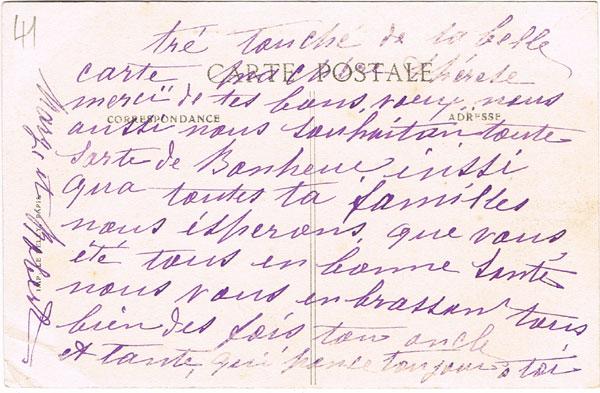 41
tré touché de ta belle
CARTE POSTALE
carte ma chère
merçi de tes bons voeux nous
CORRESPONDANCE
ADRESSE
aussi nous souhaitan toute
sorte de Bonheur inssi
qua toutes ta familles
nous ésperons que vous
été tous en bonne santé
nous vous enbrasson tous
bien des fois ton oncle
et tante qui pense toujour a toi